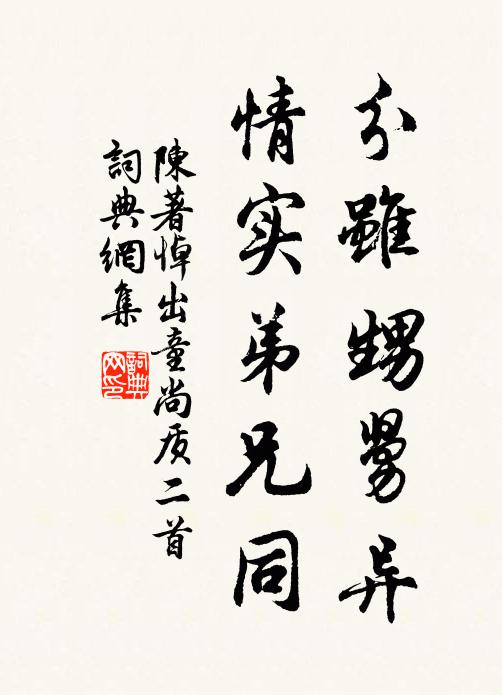 分雖甥舅异
情实弟兄同
陳著悼出童尚质二首
詞典網集
詞典网印